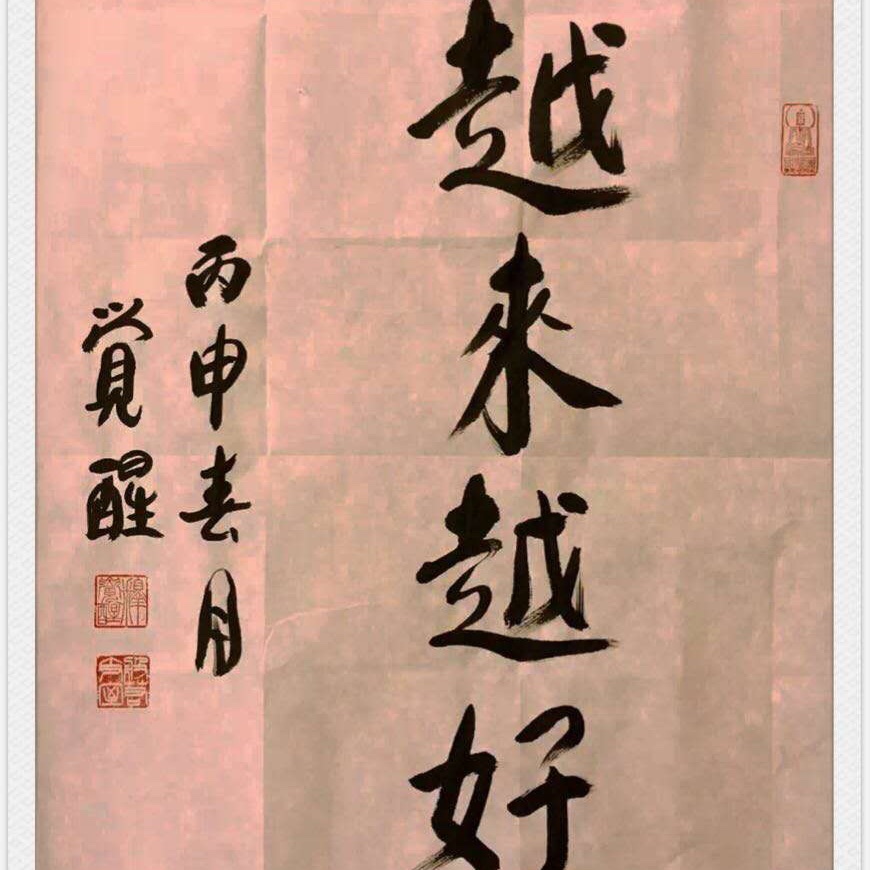 越來越好
丙申春月
覺醒